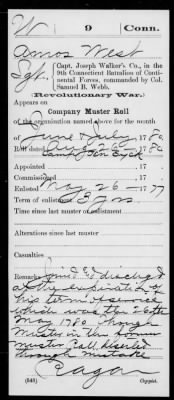 W 9 Conn.
Amos West
Sgt., Capt. Joseph Walker's Co., in the
9th Connecticut Battalion of Conti-
nental Forces, commanded by Col.
Samuel B. Webb.
(Revolutionary War.)
Appears on
Company Muster Roll
of the organization named above for the month
of June & July, 1780.
Roll dated Aug 26 – 1780
Camp Ten Eyck
Appointed 17
Commissioned 17
Enlisted May 26 – 1777
Term of enlistment 3 yrs
Time since last muster or enlistment
Alterations since last muster
Casualties
Remarks: Joind & dischargd
at the expiration of
his term of service
which was the 26th
May 1780. Wrong
Muster in the former
muster Call. Deserted
through mistake
Ragan
(543) Copyist.